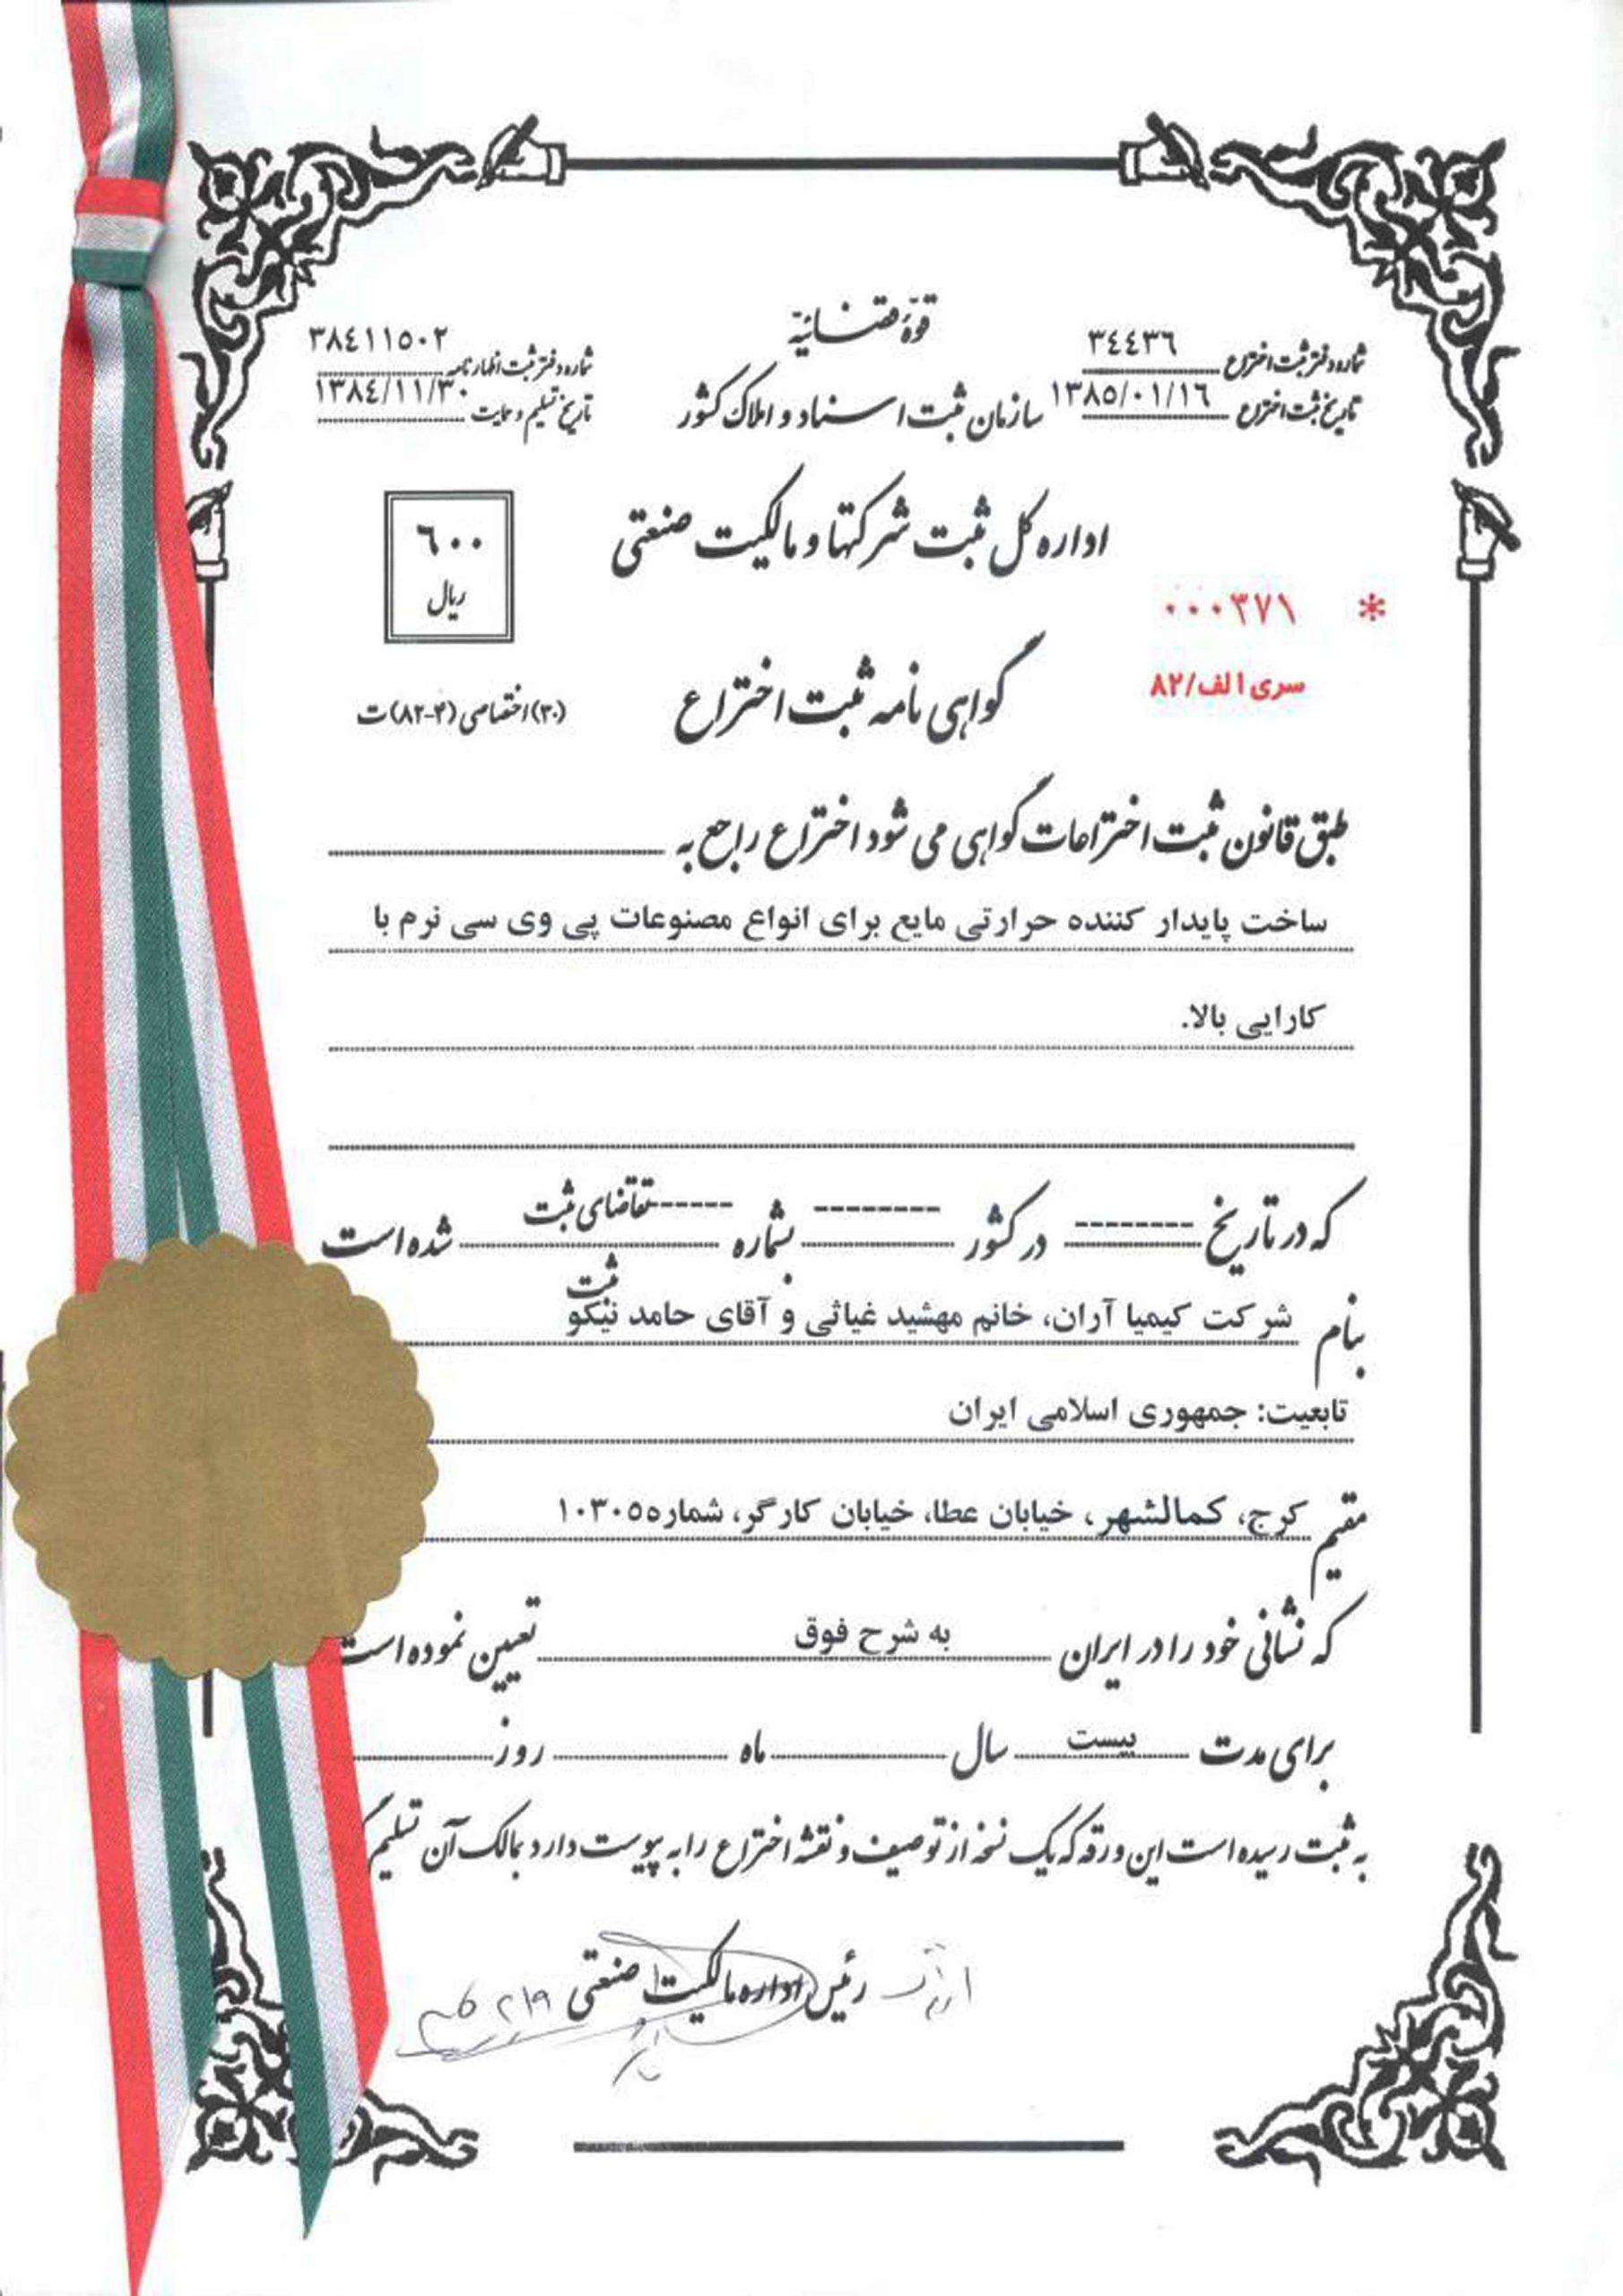 قوهٔ قضائیه
شماره دفتر ثبت اختراع ٣٤٤٣٦
تاریخ ثبت اختراع ١٣٨٥/٠١/١٦
سازمان ثبت اسناد و املاک کشور
شماره دفتر ثبت اظهارنامه ٣٨٤١١٥٠٢
تاریخ تسلیم و حمایت ١٣٨٤/١١/٣٠
اداره کل ثبت شرکتها و مالکیت صنعتی
٦٠٠
ریال
* ٠٠٠٣٧١
سری الف/٨٢
گواهی نامه ثبت اختراع
(٣٠) اختصاصی (٤-٨٢) ت
طبق قانون ثبت اختراعات گواهی می شود اختراع راجع به
ساخت پایدار کننده حرارتی مایع برای انواع مصنوعات پی وی سی نرم با
کارایی بالا.
که در تاریخ -------- در کشور -------- بشماره ------ تقاضای ثبت شده است
ثبت
بنام شرکت کیمیا آران، خانم مهشید غیاثی و آقای حامد نیکو
تابعیت: جمهوری اسلامی ایران
مقیم کرج، کمالشهر، خیابان عطا، خیابان کارگر، شماره ١٠٣٠٥٥
که نشانی خود را در ایران به شرح فوق تعیین نموده است
برای مدت بیست سال ماه روز
به ثبت رسیده است این ورقه که یک نسخه از توصیف و نقشه اختراع را به پیوست دارد بمالک آن تسلیم
رئیس اداره مالکیت صنعتی